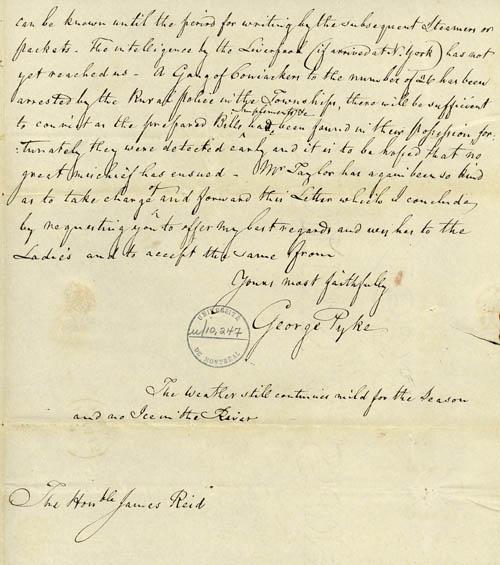 can be known until the period for writing by the subsequent Steamers or
packets - The intelligence by the Liverpool (if arrived at N. York) has not
yet reached us - A Gang of Coniackers to the number of 26 has been
arrested by the Rural Police in the Townships, there will be sufficient
to convict as the prepared Bills, Implements &c had, been found in their possession for:
:tunately they were detected early and it is to be hoped that no
great mischief has ensued - Mr Taylor has again been so kind
as to take charge of and forward this Letter which I conclude,
by requesting you to offer my best regards and wishes to the
Ladies and to accept the same from
Yours most faithfully
George Pyke
UNIVERSITÉ
u/10,247
DE MONTREAL
The Weather still continues mild for the Season
and no Ice in the River
The Honble James Reid